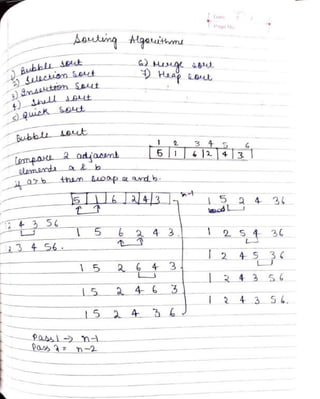 Date
Page No.
Sorting Algorithms
1) Bubble sort
2) Selection sort
3) Insertion Sort
4) Shell sort
5) Quick Sort
6) Merge sort
7) Heap sort
Bubble sort
Compare 2 adjacent
elements a & b
if a>b then swap a and b.
1 2 3 4 5 6
5 1 6 2 4 3
5 1 6 2 4 3
1 5 6 2 4 3
1 5 2 6 4 3
1 5 2 4 6 3
1 5 2 4 3 6
n-1
1 5 2 4 3 6
1 2 5 4 3 6
1 2 4 5 3 6
1 2 4 3 5 6
1 2 4 3 5 6.
2 4 3 5 6
2 3 4 5 6.
Pass 1 → n-1
Pass 2 = n-2